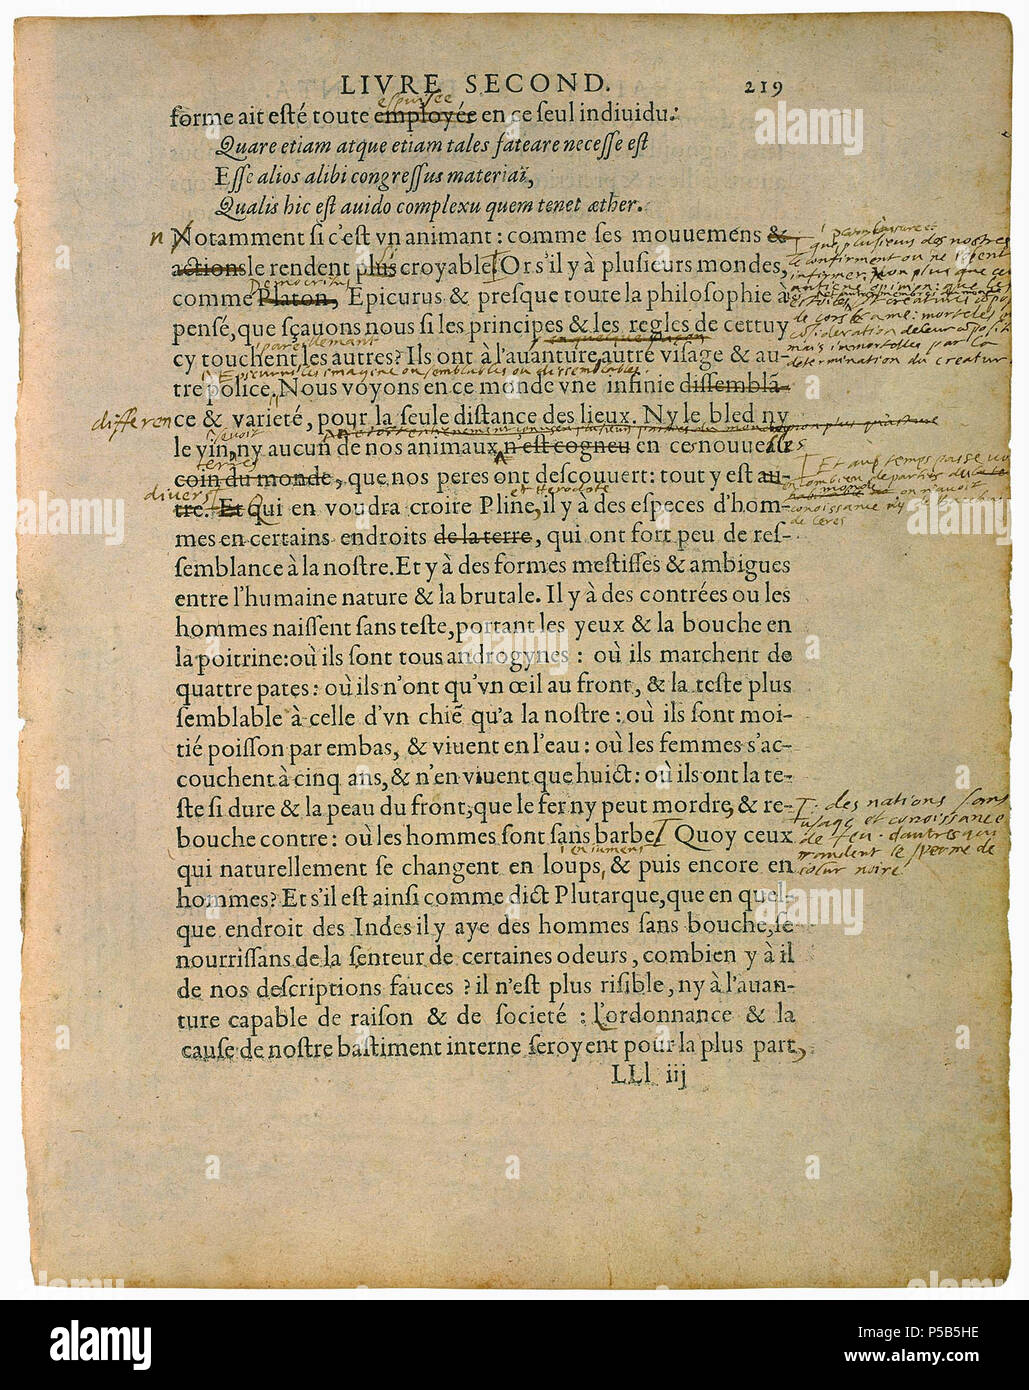 LIVRE SECOND. 219
espuisee
forme ait esté toute employée en ce seul indiuidu:
Quare etiam atque etiam tales fateare necesse est
Esse alios alibi congressus materiaï,
Qualis hic est auido complexu quem tenet æther.
n Notamment si c'est vn animant: comme ses mouuemens &
actions le rendent plus croyable. Or s'il y à plusieurs mondes,
Democritus
comme Platon, Epicurus & presque toute la philosophie à
pensé, que sçauons nous si les principes & les regles de cettuy
cy touchent les autres? Ils ont à l'auanture autre visage & au-
Epicurus les imagine ou semblables ou dissemblables.
tre police. Nous voyons en ce monde vne infinie dissemblã-
differen ce & varieté, pour la seule distance des lieux. Ny le bled ny
le vin, ny aucun de nos animaux n'est cogneu en ce nouueau
terres
coin du monde, que nos peres ont descouuert: tout y est au-
divers
et Herodote
tre. Et Qui en voudra croire Pline, il y à des especes d'hom-
mes en certains endroits de la terre, qui ont fort peu de res-
semblance à la nostre. Et y à des formes mestisses & ambigues
entre l'humaine nature & la brutale. Il y à des contrées ou les
hommes naissent sans teste, portant les yeux & la bouche en
la poitrine: où ils sont tous androgynes: où ils marchent de
quattre pates: où ils n'ont qu'vn œil au front, & la teste plus
semblable à celle d'vn chiẽ qu'a la nostre: où ils sont moi-
tié poisson par embas, & viuent en l'eau: où les femmes s'ac-
couchent à cinq ans, & n'en viuent que huict: où ils ont la te-
ste si dure & la peau du front, que le fer ny peut mordre, & re-
bouche contre: où les hommes sont sans barbe. Quoy ceux
des nations sans
usage et conoissance
de feu. d'autres qui
randent le sperme de
colur noire
en jumens
qui naturellement se changent en loups, & puis encore en
hommes? Et s'il est ainsi comme dict Plutarque, que en quel-
que endroit des Indes il y aye des hommes sans bouche, se
nourrissans de la senteur de certaines odeurs, combien y à il
de nos descriptions fauces? il n'est plus risible, ny à l'auan-
ture capable de raison & de societé: L'ordonnance & la
cause de nostre bastiment interne seroyent pour la plus part,
LLl iij
alamy
Image ID: P5B5HE
www.alamy.com